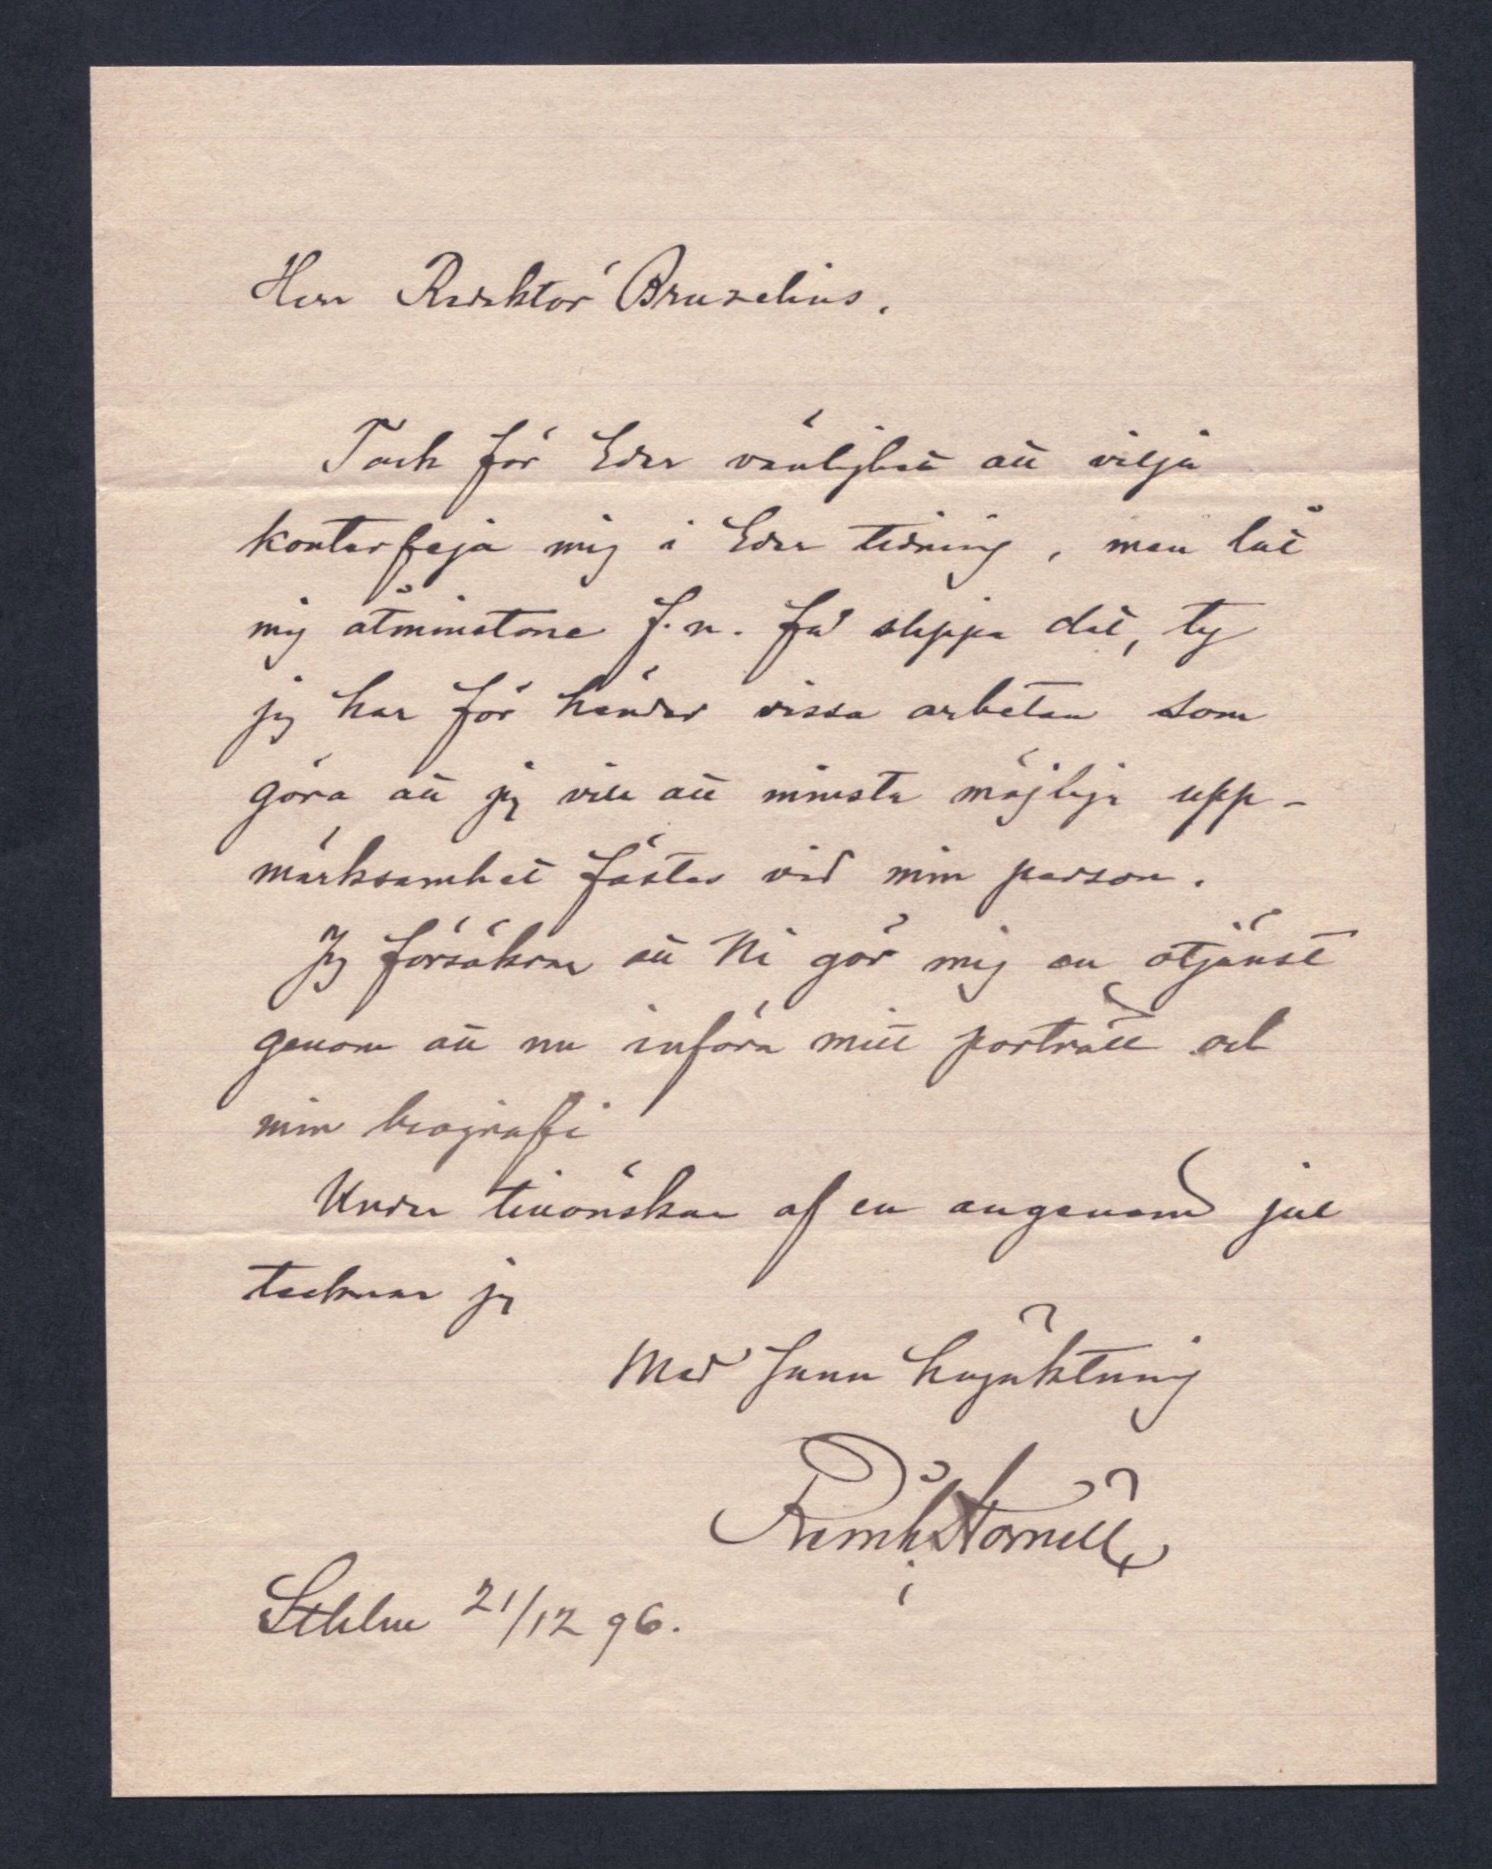 Herr Redaktör Bruzelius.
Tack för Eder vänlighet att vilja
konterfeja mig i Eder tidning, men låt
mig åtminstone f.n. få slippa det, ty
jag har för händer vissa arbeten som
göra att jag vill att minsta möjliga upp-
märksamhet fästes vid min person.
Jag försäkrar att Ni gör mig en otjänst
genom att nu införa mitt porträtt och
min biografi
Under tillönskan af en angenäm jul
tecknar jag
Med sann högaktning
Reinh. Hörnell
Sthlm 21/12 96.